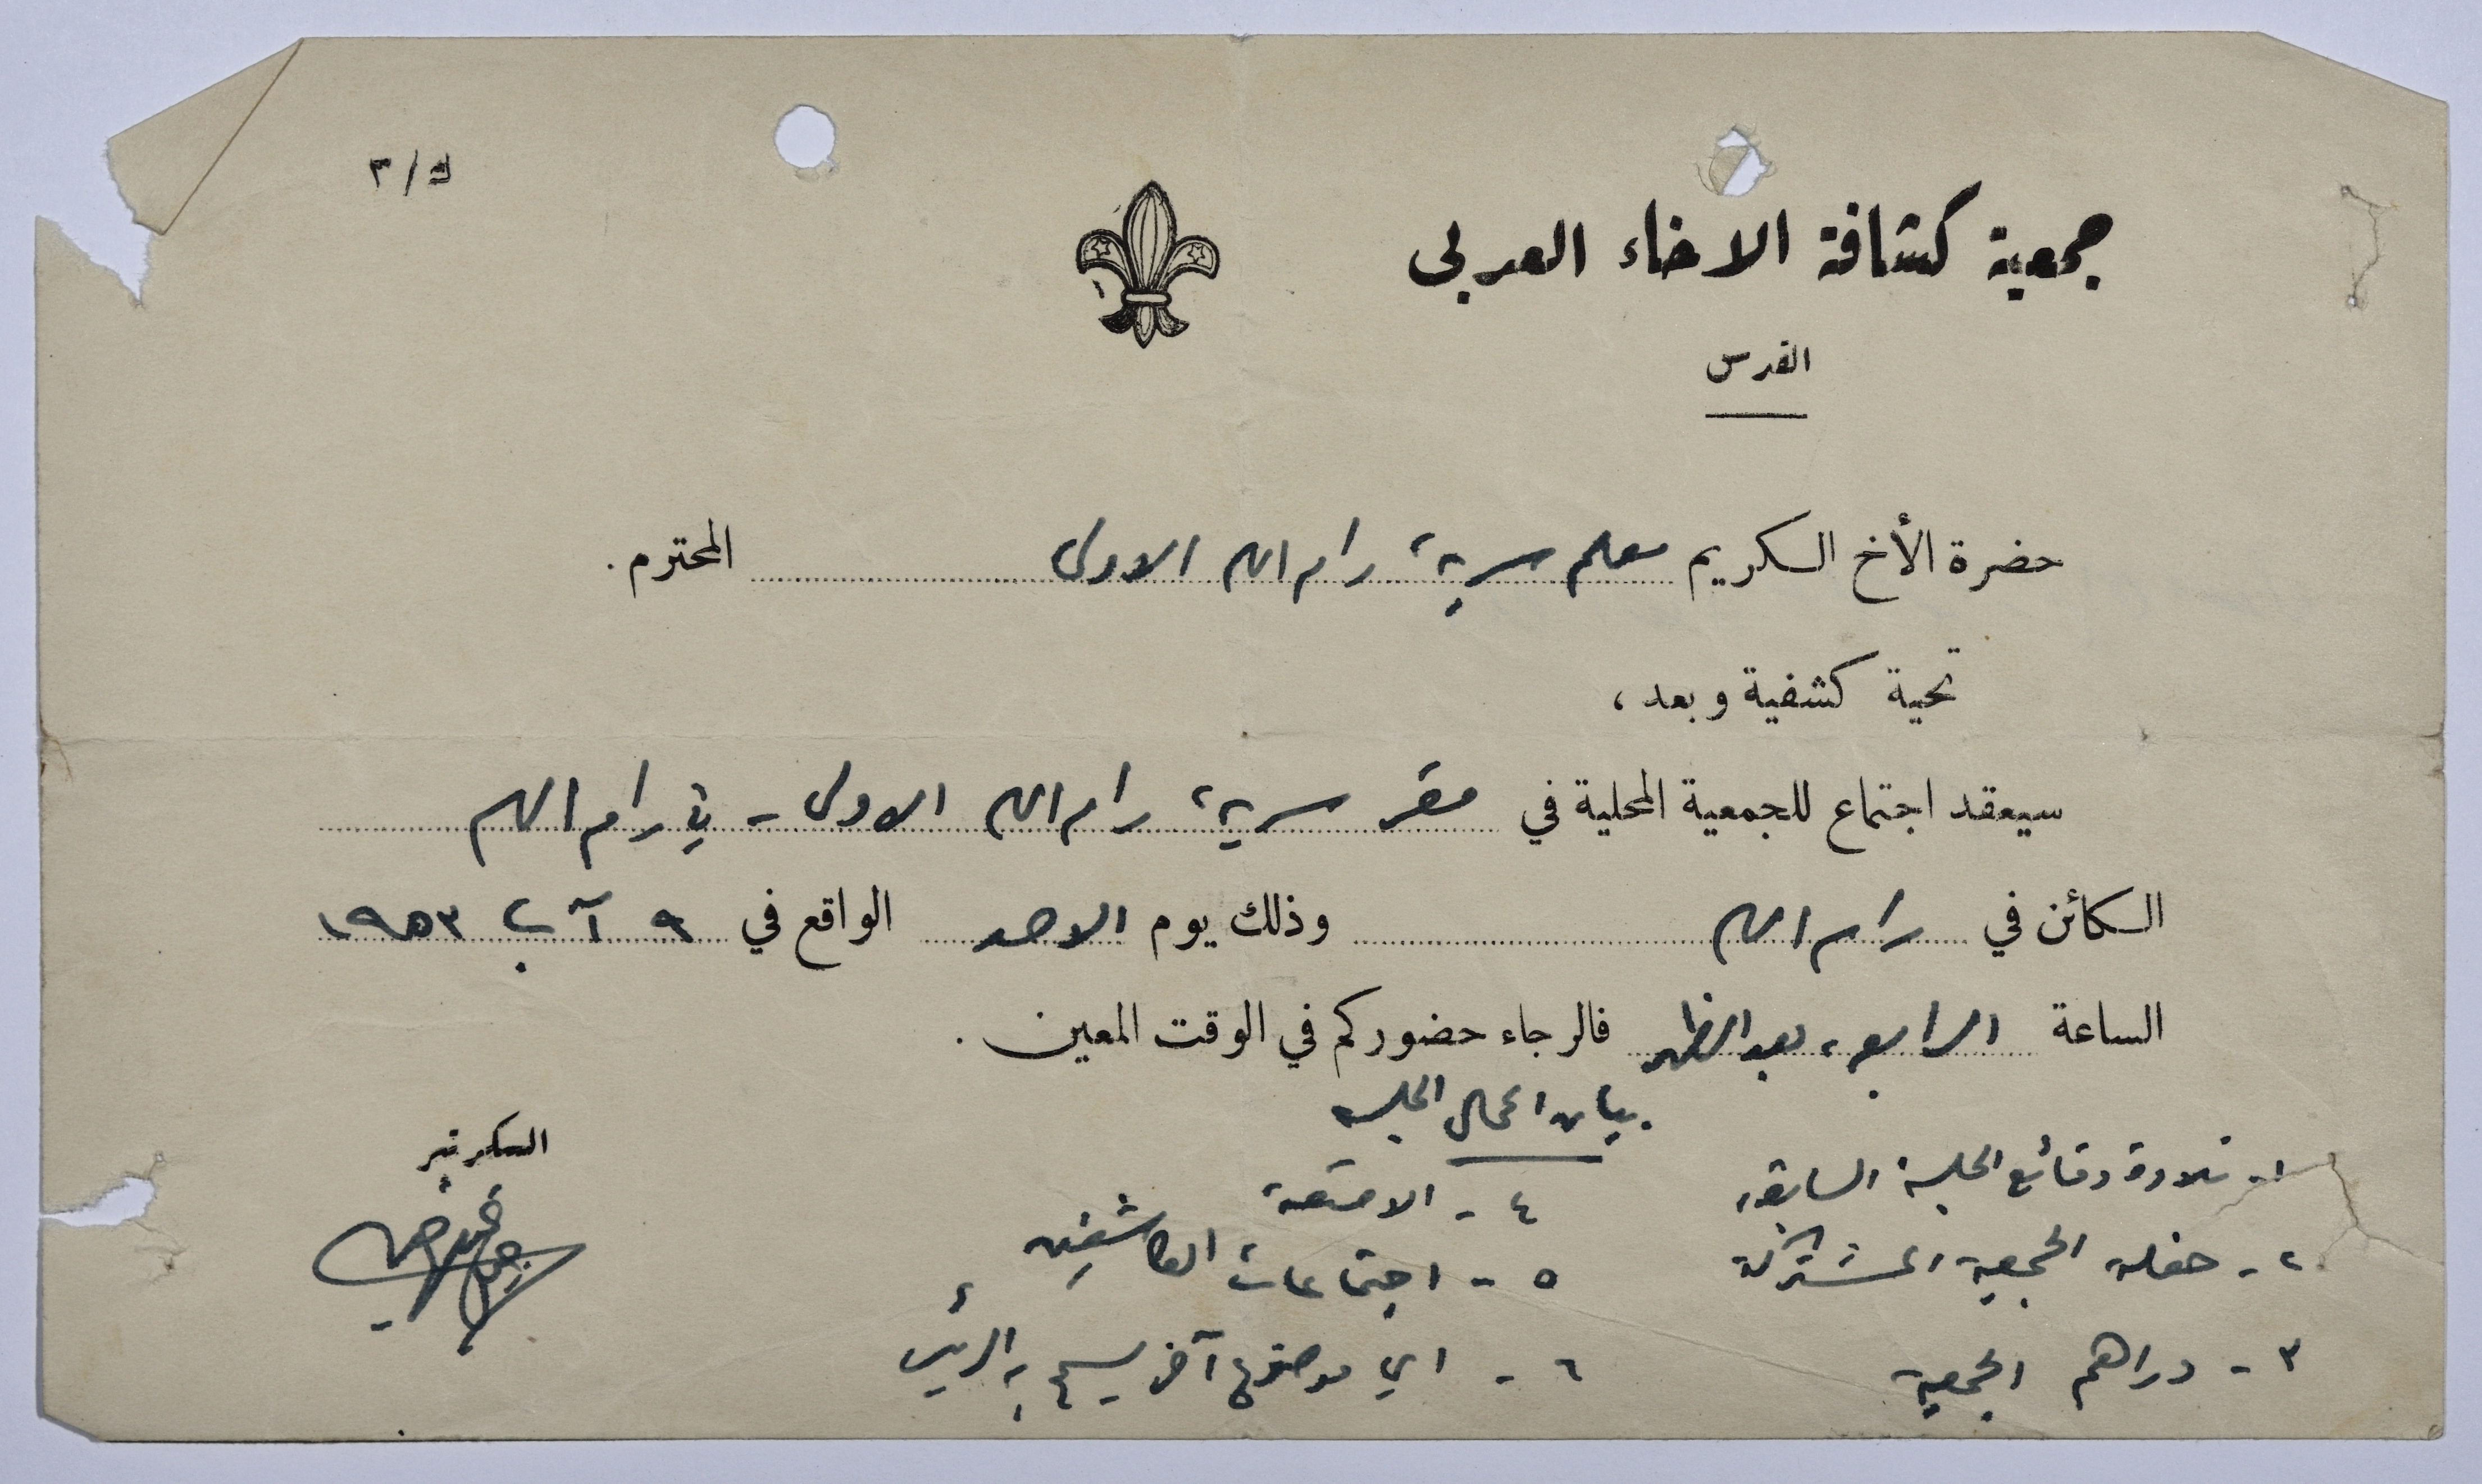 ك/٣
جمعية كشافة الاخاء العربي
القدس
حضرة الأخ الكريم معلم سرية رام الله الاولى المحترم.
تحية كشفية وبعد،
سيعقد اجتماع للجمعية المحلية في مقر سرية رام الله الاولى - في رام الله
الكائن في رام الله وذلك يوم الاحد الواقع في ٩ آب ١٩٥٣
الساعة الرابعة بعد الظهر فالرجاء حضوركم في الوقت المعين.
بيان اعمال الجلسة
السكرتير
١- تلاوة وقائع الجلسة السابقة
٢- حفلة الجمعية المشتركة
٣- دراهم الجمعية
٤- الامتعة
٥- اجتماعات الكاشفين
٦- اي موضوع آخر يسمح به الرئيس